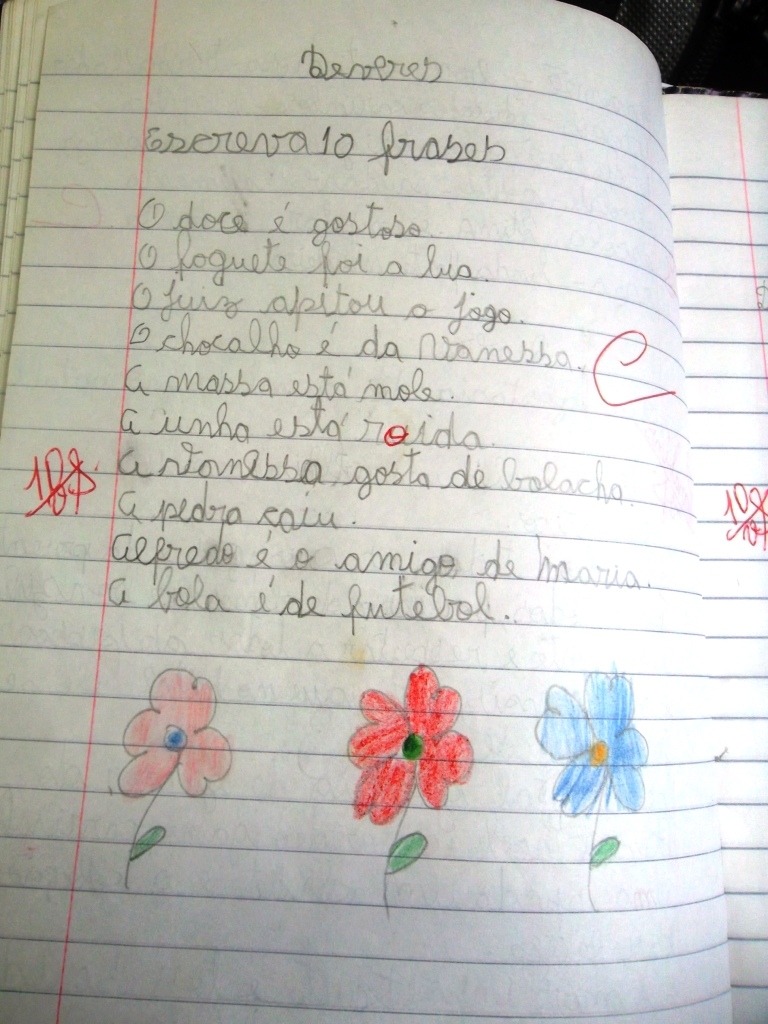 Deveres
Escreva 10 frases
O doce é gostoso.
O foguete foi a lua.
O juiz apitou o jogo.
O chocalho é da Vanessa.
A massa está mole.
A unha está roida.
A Vanessa gosta de bolacha.
A pedra caiu.
Alfredo é o amigo de maria.
A bola é de futebol.
C